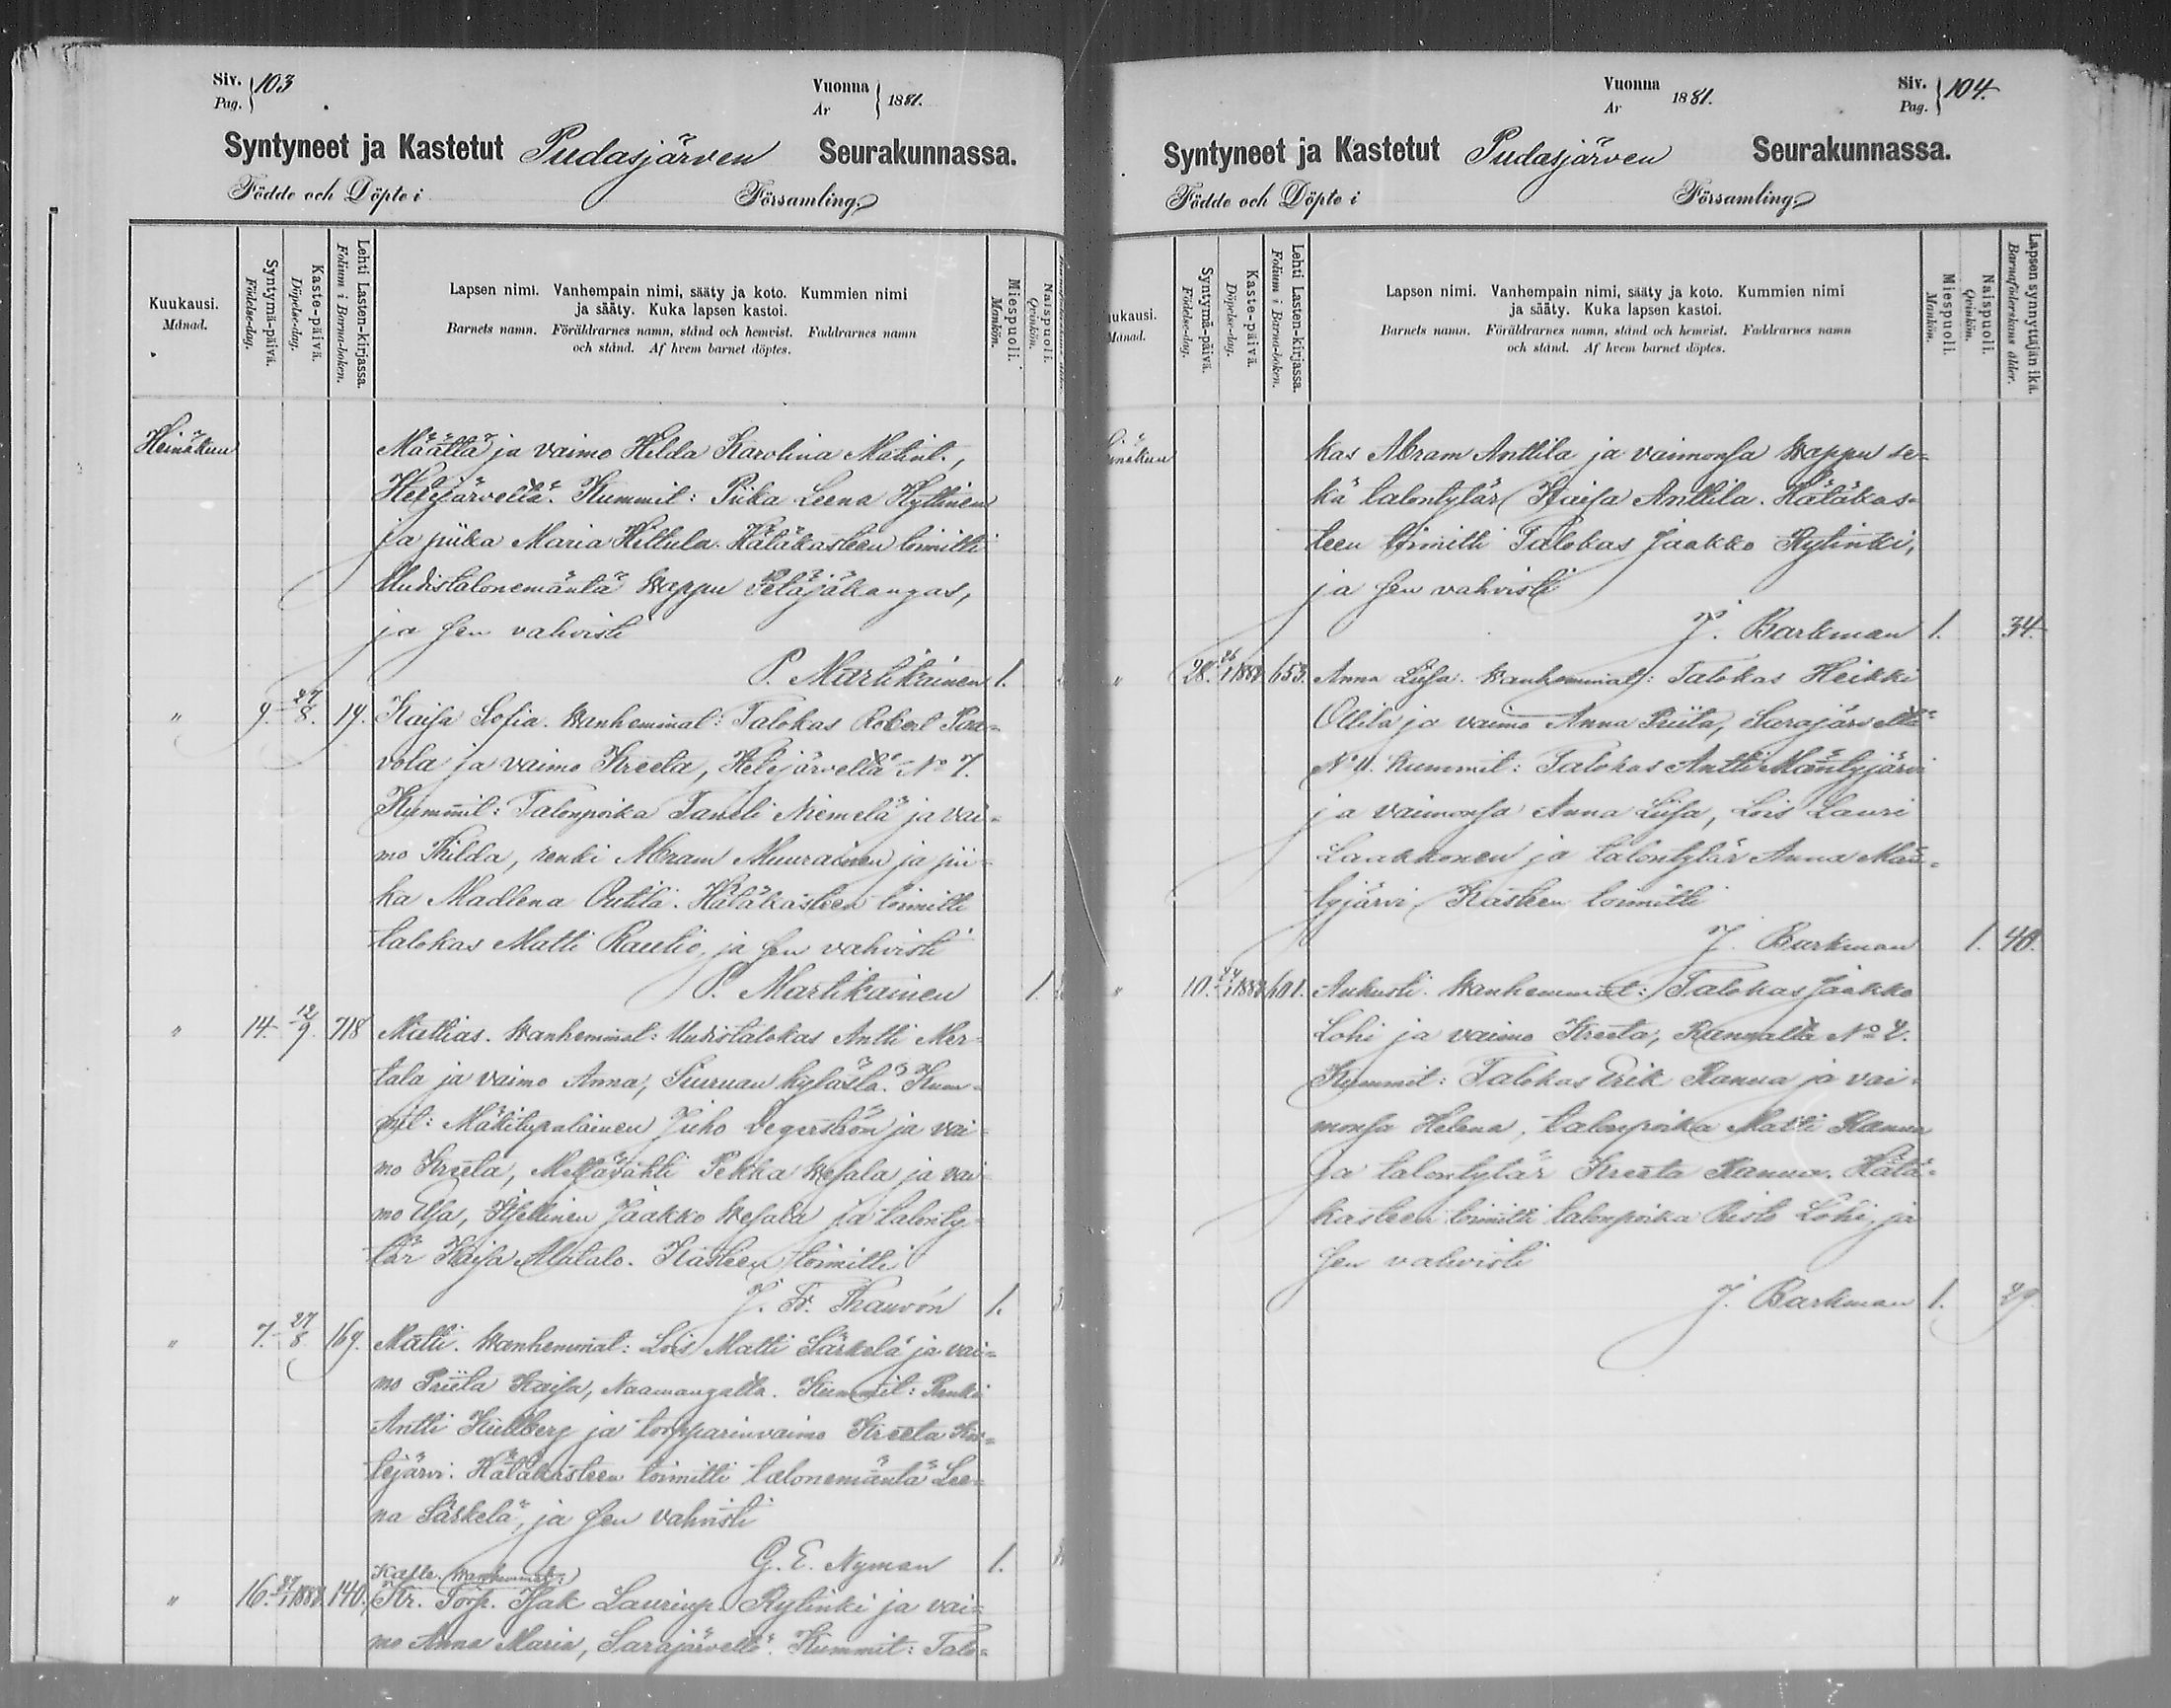 Siv. 103
Pag.
Vuonna 1881.
År
Syntyneet ja Kastetut Pudasjärven Seurakunnassa.
Födde och Döpte i Församling.
Kuukausi.
Månad.
Syntymä-päivä.
Födelse-dag.
Kaste-päivä.
Döpelse-dag.
Lehti Lasten-kirjassa.
Folium i Barna-boken.
Lapsen nimi. Vanhempain nimi, sääty ja koto. Kummien nimi
ja sääty. Kuka lapsen kastoi.
Barnets namn. Föräldrarnes namn, stånd och hemvist. Faddrarnes namn
och stånd. Af hvem barnet döptes.
Miespuoli.
Mankön.
Naispuoli.
Qvinkön.
Heinäkuu Määttä ja vaimo Hilda Karolina Matint.,
Hetejärveltä. Kummit: Piika Leena Hyttinen
ja piika Maria Hiltula. Hätäkasteen toimitti
Uudistalonemäntä Wappu Petäjäkangas,
ja sen vahvisti
P. Martikainen 1.
" 9. 27/8. 19. Kaisa Sofia. Wanhemmat: Talokas Robert Paa-
vola ja vaimo Kreeta, Hetejärveltä No 7.
Kummit: Talonpoika Taneli Niemelä ja vai-
mo Hilda, renki Abram Muurainen ja pii-
ka Madlena Outila. Hätäkasteen toimitti
talokas Matti Raulio, ja sen vahvisti
P. Martikainen 1.
" 14. 12/9. 718 Mattias. Wanhemmat: Uudistalokas Antti Mer-
tala ja vaimo Anna, Siuruan kylästä. Kum-
mit: Mäkitupalainen Juho Degerström ja vai-
mo Kreeta, Metsävahti Pekka Wesala ja vai-
mo Elsa, Itsellinen Jaakko Wesala ja talonty-
tär Kaisa Alatalo. Kasteen toimitti
J. Fr. Thauvón 1.
" 7. 27/8 169. Matti. Wanhemmat: Lois Matti Särkelä ja vai-
mo Priita Kaisa, Naamangalta. Kummit: Renki
Antti Kullberg ja torpparinvaimo Kreeta Koi-
tejärvi. Hätäkasteen toimitti talonemäntä Lee-
na Särkelä, ja sen vahvisti
G. E. Nyman 1.
Kalle. Wanhemmat:
" 16. 140. Kr. Torp. Isak Laurinp. Rytinki ja vai-
mo Anna Maria, Sarajärveltä. Kummit: Talo-
Vuonna 1881.
År
Siv. 104.
Pag.
Syntyneet ja Kastetut Pudasjärven Seurakunnassa.
Födde och Döpte i Församling
ukausi.
Månad.
Syntymä-päivä.
Födelse-dag.
Kaste-päivä.
Döpelse-dag.
Lehti Lasten-kirjassa.
Folium i Barna-boken.
Lapsen nimi. Vanhempain nimi, sääty ja koto. Kummien nimi
ja sääty. Kuka lapsen kastoi.
Barnets namn. Föräldrarnes namn, stånd och hemvist. Faddrarnes namn
och stånd. Af hvem barnet döptes.
Miespuoli.
Mankön.
Naispuoli.
Qvinkön.
Lapsen synnyttäjän ikä.
Barnaföderskans ålder.
inäkuu kas Abram Anttila ja vaimonsa Wappu se-
kä talontytär Kaisa Anttila. Hätäkas-
teen toimitti Talokas Jaakko Rytinki,
ja sen vahvisti
J. Barkman 1. 34.
" 28. 653. Anna Liisa. Wanhemmat: Talokas Heikki
Ollila ja vaimo Anna Priita, Sarajärveltä
No 11. Kummit: Talokas Antti Mäntyjärvi
ja vaimonsa Anna Liisa, Lois Lauri
Laakkonen ja talontytär Anna Män-
tyjärvi. Kasteen toimitti
J. Barkman 1. 40.
" 10. 601. Aukusti. Wanhemmat: Talokas Jaakko
Lohi ja vaimo Kreeta, Rannalta No 2.
Kummit: Talokas Erik Ranua ja vai-
monsa Helena, talonpoika Matti Ranua
ja talontytär Kreeta Ranua. Hätä-
kasteen toimitti talonpoika Risto Lohi, ja
sen vahvisti
J. Barkman 1. 29.